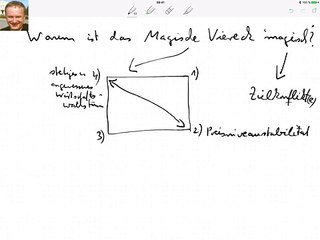 Warum ist das Magische Viereck magisch?
stetiges u. 4)
angemessenes
Wirtschafts-
wachstum
1)
Zielkonflikt(e)
3)
2) Preisniveaustabilität